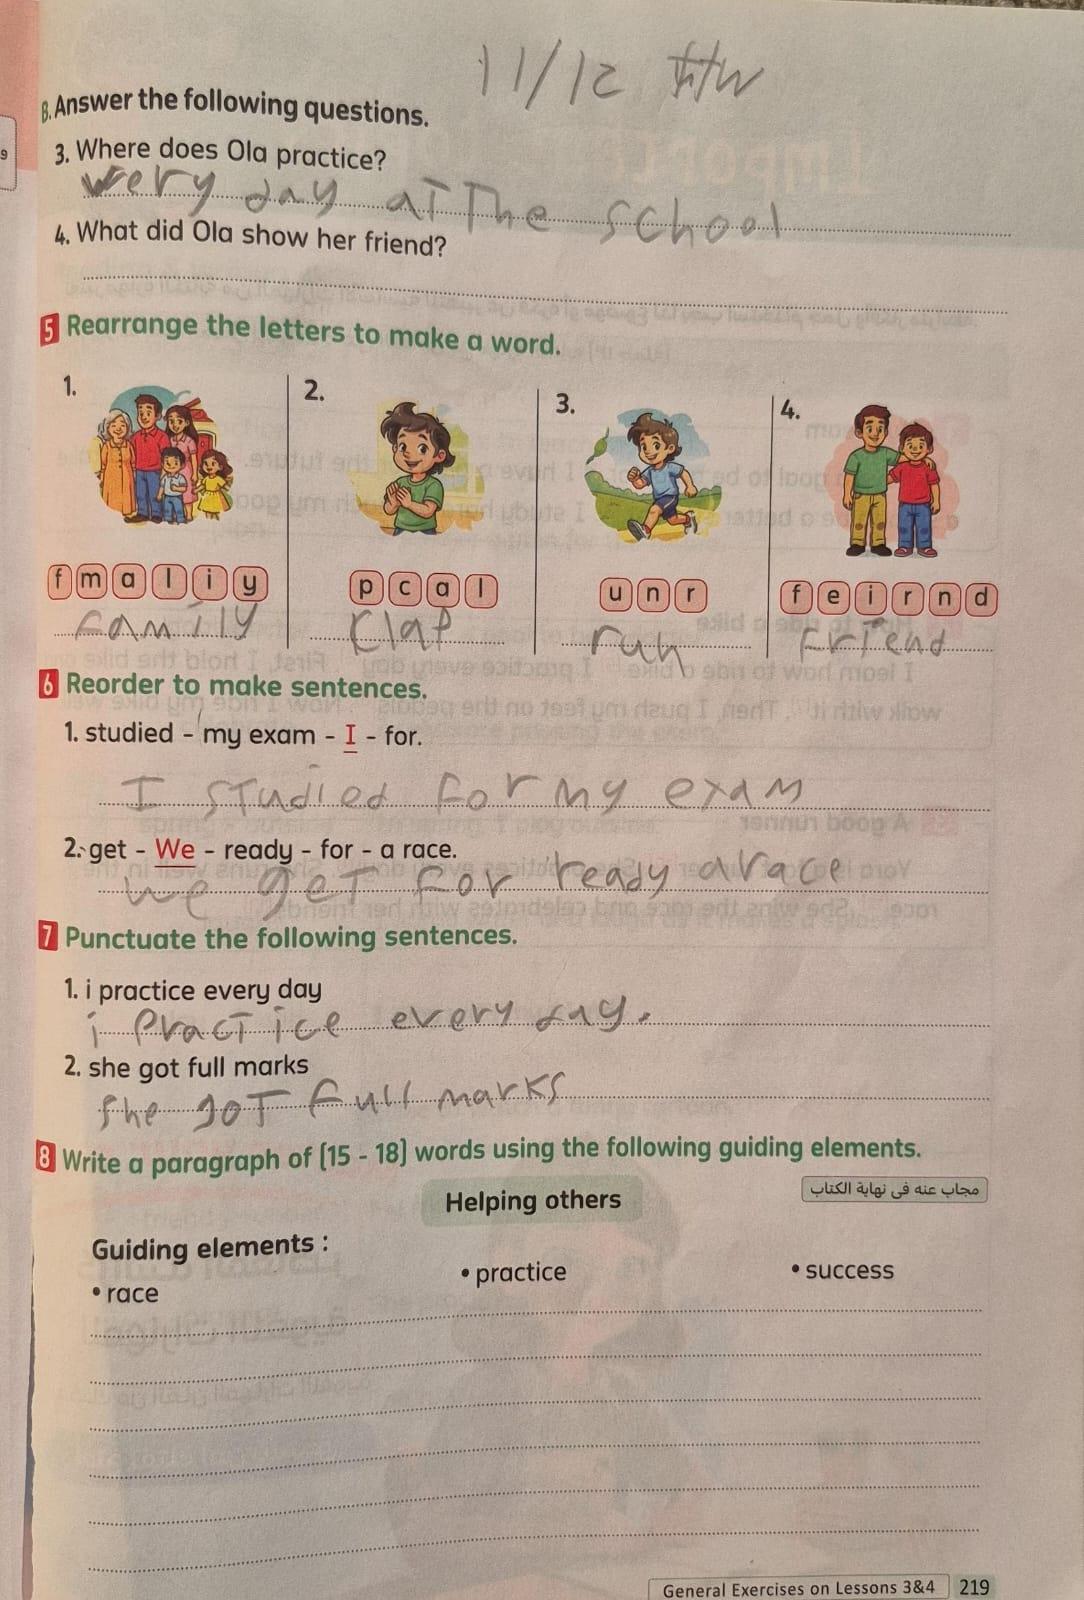 11/12 HW
B. Answer the following questions.
3. Where does Ola practice?
very day at The school
4. What did Ola show her friend?
5 Rearrange the letters to make a word.
1. 2. 3. 4.
f m a l i y p c a l u n r f e i r n d
family Klap run friend
6 Reorder to make sentences.
1. studied - my exam - I - for.
I studied for my exam
2. get - We - ready - for - a race.
we get for ready a race
7 Punctuate the following sentences.
1. i practice every day
i Practice every day.
2. she got full marks
she got full marks
8 Write a paragraph of (15 - 18) words using the following guiding elements.
مجاب عنه فى نهاية الكتاب
Helping others
Guiding elements :
• race • practice • success
General Exercises on Lessons 3&4 219
9